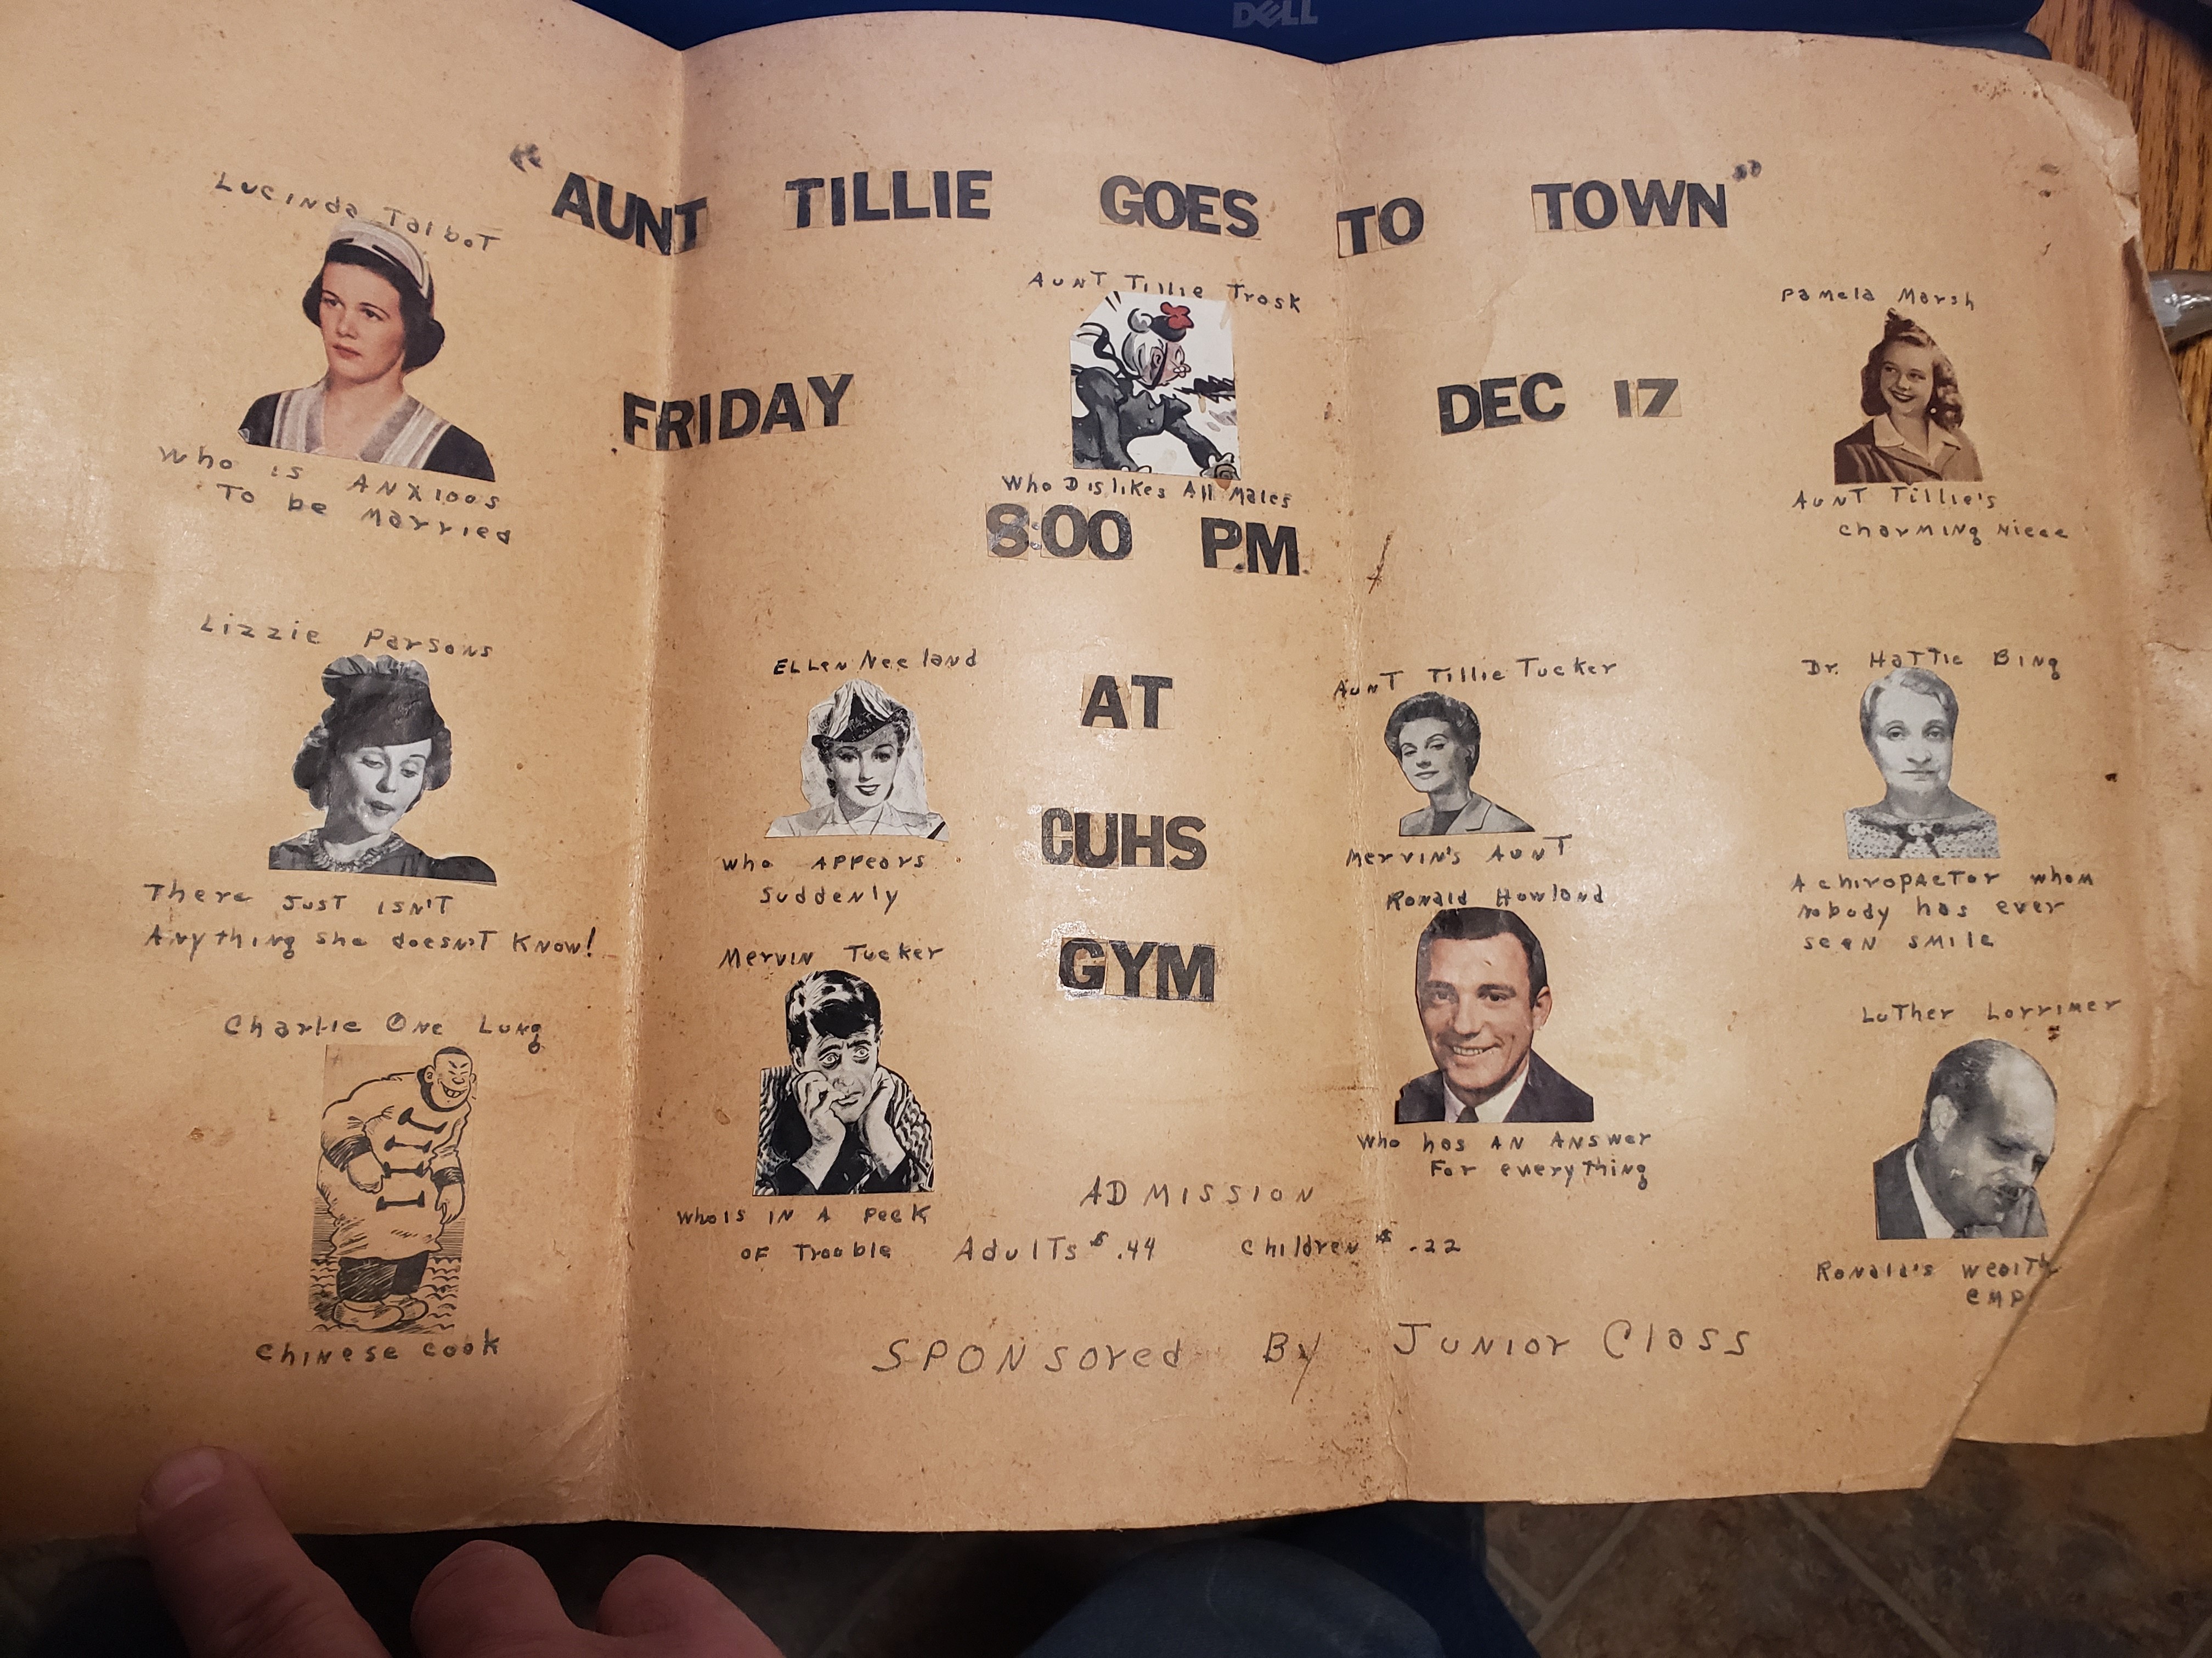 DELL
"AUNT TILLIE GOES TO TOWN"
Lucinda Talbot
Who is ANXIOUS
To be Married
Aunt Tillie Trask
Who Dislikes All Males
Pamela Marsh
Aunt Tillie's
charming Niece
FRIDAY DEC 17
8:00 P.M.
Lizzie Parsons
There Just isn't
Anything she doesn't Know!
Ellen Neeland
who Appears
Suddenly
AT
CUHS
GYM
Aunt Tillie Tucker
Mervin's Aunt
Dr. Hattie Bing
A chiropactor whom
nobody has ever
seen smile
Charlie One Lung
Chinese cook
Mervin Tucker
who is IN A Peck
OF Trouble
Ronald Howland
Who has AN Answer
For everything
Luther Lorrimer
Ronald's wealth
emp
ADMISSION
Adults $.44 Children $.22
Sponsored By Junior Class